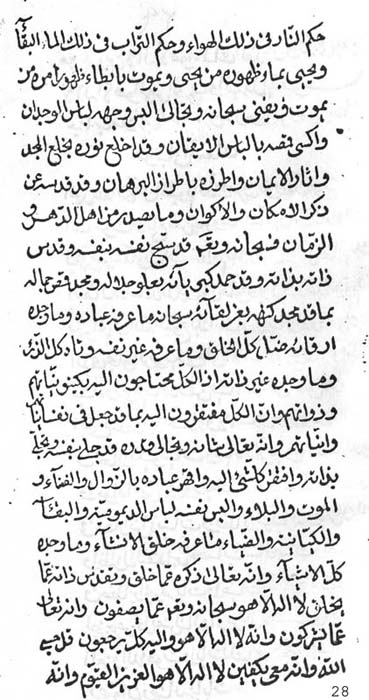 حكم النار فى ذلك الهواء وحكم التراب فى ذلك الماء البقاء
ويحيى بماء ظهوره من يحيى ويموت بابطاء ظهوره من
يموت فيفنى سبحانه وتعالى البس وجهه لباس الوجدان
واكسى قمصه بالباس الايقان وقد اخلع نوره بخلع المجد
واثار الايمان واطرزه باطراز البرهان وقد قدسه عن
ذكر الامكان والاكوان وما يصل من اهل الدهر و
الزمان فسبحانه وتعالى قد سبح نفسه بنفسه وقدس
ذاته بذاته وقد حمد كبريائه بعلو جلاله ومجد جماله
بما قد مجد كنهه بعز لقائه سبحانه ما عرفه عباده وما وحده
ارقائه ضل كل الخلق وما عرفه غير نفسه وتاه كل الذر
وما وحده غير ذاته اذ الكل محتاجون اليه بكينونياتهم
وذواتهم وان الكل مفتقرون اليه بما قد جعل فى نفسانياتهم
وانياتهم وانه تعالى شانه وتعالى قدره قد تجلى بنفسه وتجلى
بذاته وافتقر كلشئ اليه واقهر عباده بالزوال والفناء و
الموت والبلاء والبس نفسه لباس الديمومية والبقاء
والكيانية والضياء ما عرفه خلق الانشاء وما وحده
كل الاشياء وانه تعالى ذكره عما خلق ويقدس ذاته عما
يخلق لا اله الا هو سبحانه وتعالى عما يصفون وانه تعالى
عما يشركون وانه لا اله الا هو واليه كل يرجعون قل حسبى
الله وانه معى يكفين لا اله الا هو العزيز القيوم وانه
28